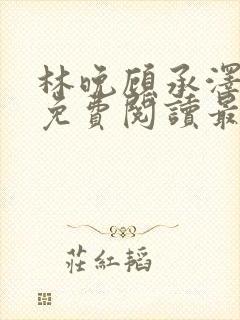 林晚顾承泽
免費閱讀最
莊紅韜